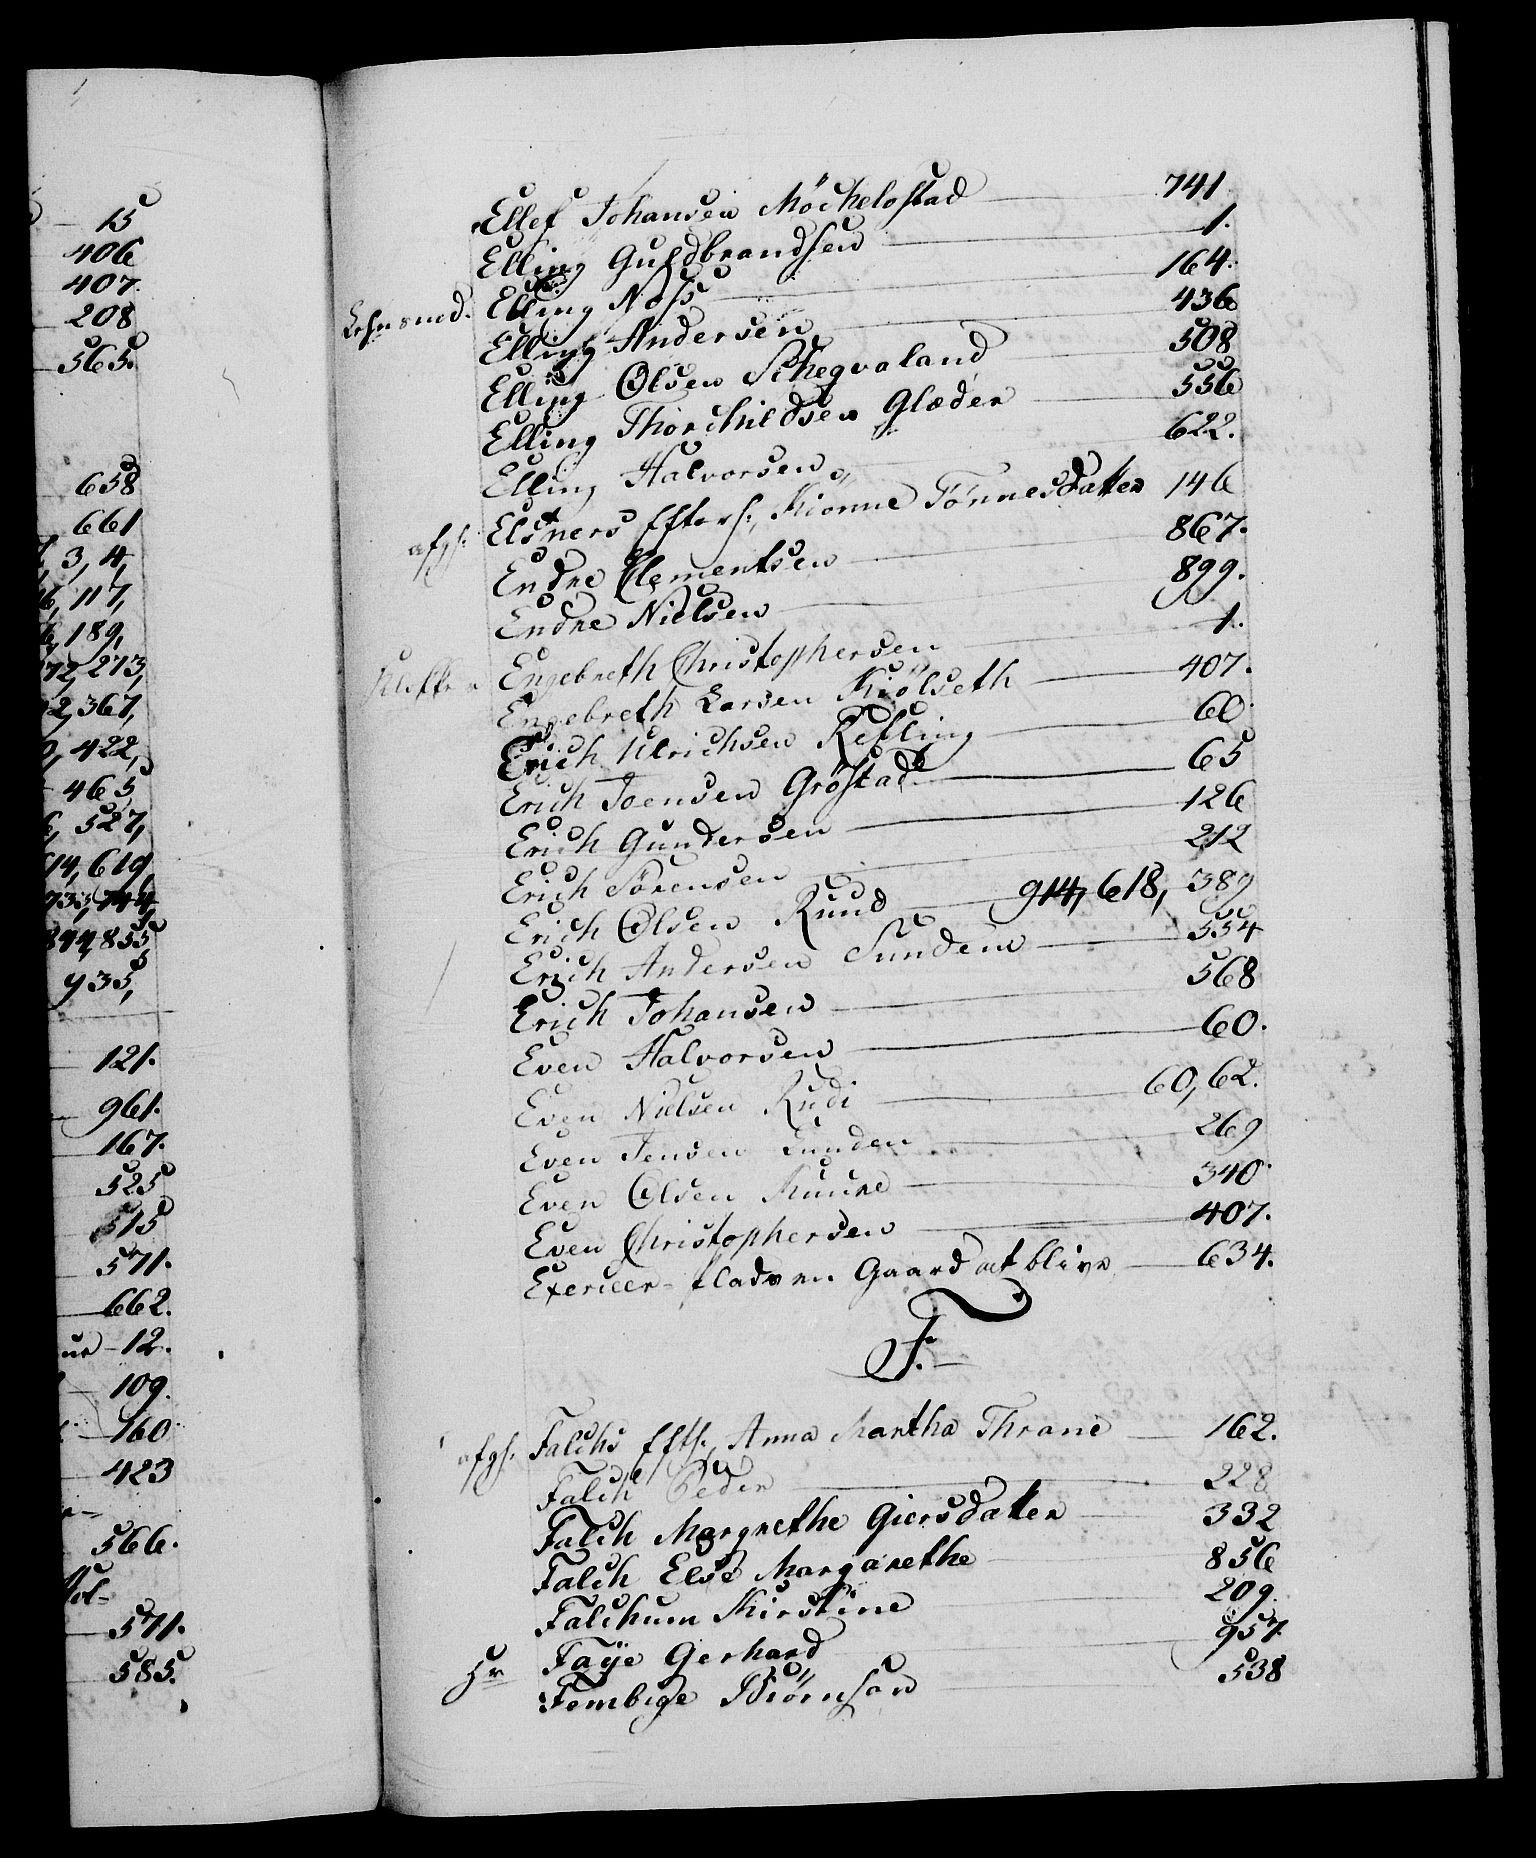 15
406
407.
208
565.
658
661
3, 4,
117,
189,
273,
367,
422,
465
527,
619,
855
935,
121.
961.
167.
525
515
571.
662.
12.
109.
160
423
566.
571.
585.
Ellef Johansen Möchelostad 741.
Elling Guldbrandsen 1.
Lehnsmd. Elling Noss 164.
Elling Andersen 436
Elling Olsen Schegvaland 508
Elling Thorchildsen Glæder 556
Elling Halvorsen 622.
afg: Elsners Efterf:, Kionne Tönnesdatter 146
Endre Clementsen 867.
Endre Nielsen 899.
Engebreth Christophersen 1.
Engebreth Larsen Kiölseth 407.
Erich Ulrichsen Refling 60.
Erich Joensen Gröstad 65
Erich Gundersen 126
Erich Sörensen 212
Erich Olsen Ruud 914, 618, 389
Erich Andersen Sunden 554
Erich Johansen 568
Even Halvorsen 60.
Even Nielsen Rudi 60, 62.
Even Jensen Lunden 269
Even Olsen Kuure 340.
Even Christophersen 407.
Exercer-Pladsen Gaard at blive 634.
F.
afg: Falchs Eftf:, Anna Martha Thrane 162.
Falch Peder 228
Falch Margrethe Giersdatter 332
Falch Else Margarethe 856
Falchum Kirstine 209.
Hr Faÿe Gerhard 957.
Fembige Biörnson 538